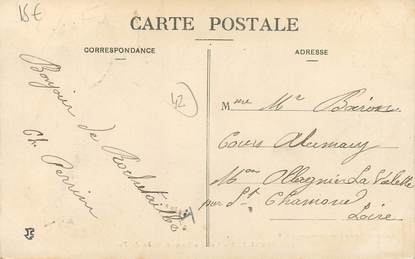 15€
CARTE POSTALE
CORRESPONDANCE
ADRESSE
Bonjour de Rochetaillée
Ch. Perrin
42
Mme Mr
Cours
Mon La Valette
par St Chamond
Loire